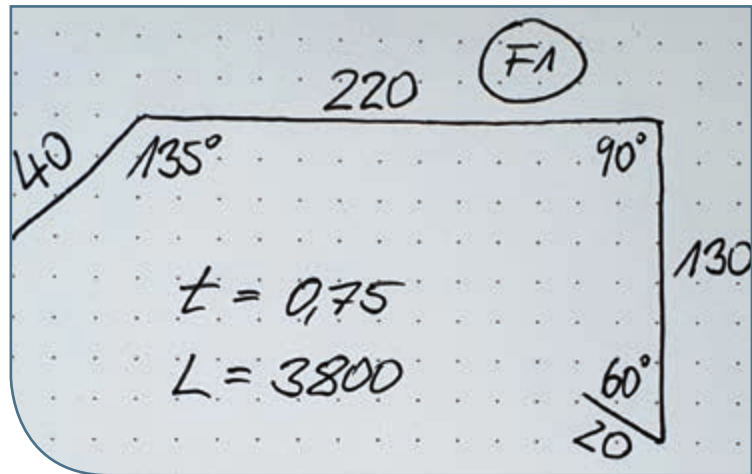 F1
220
40
135°
90°
130
t = 0,75
L = 3800
60°
20